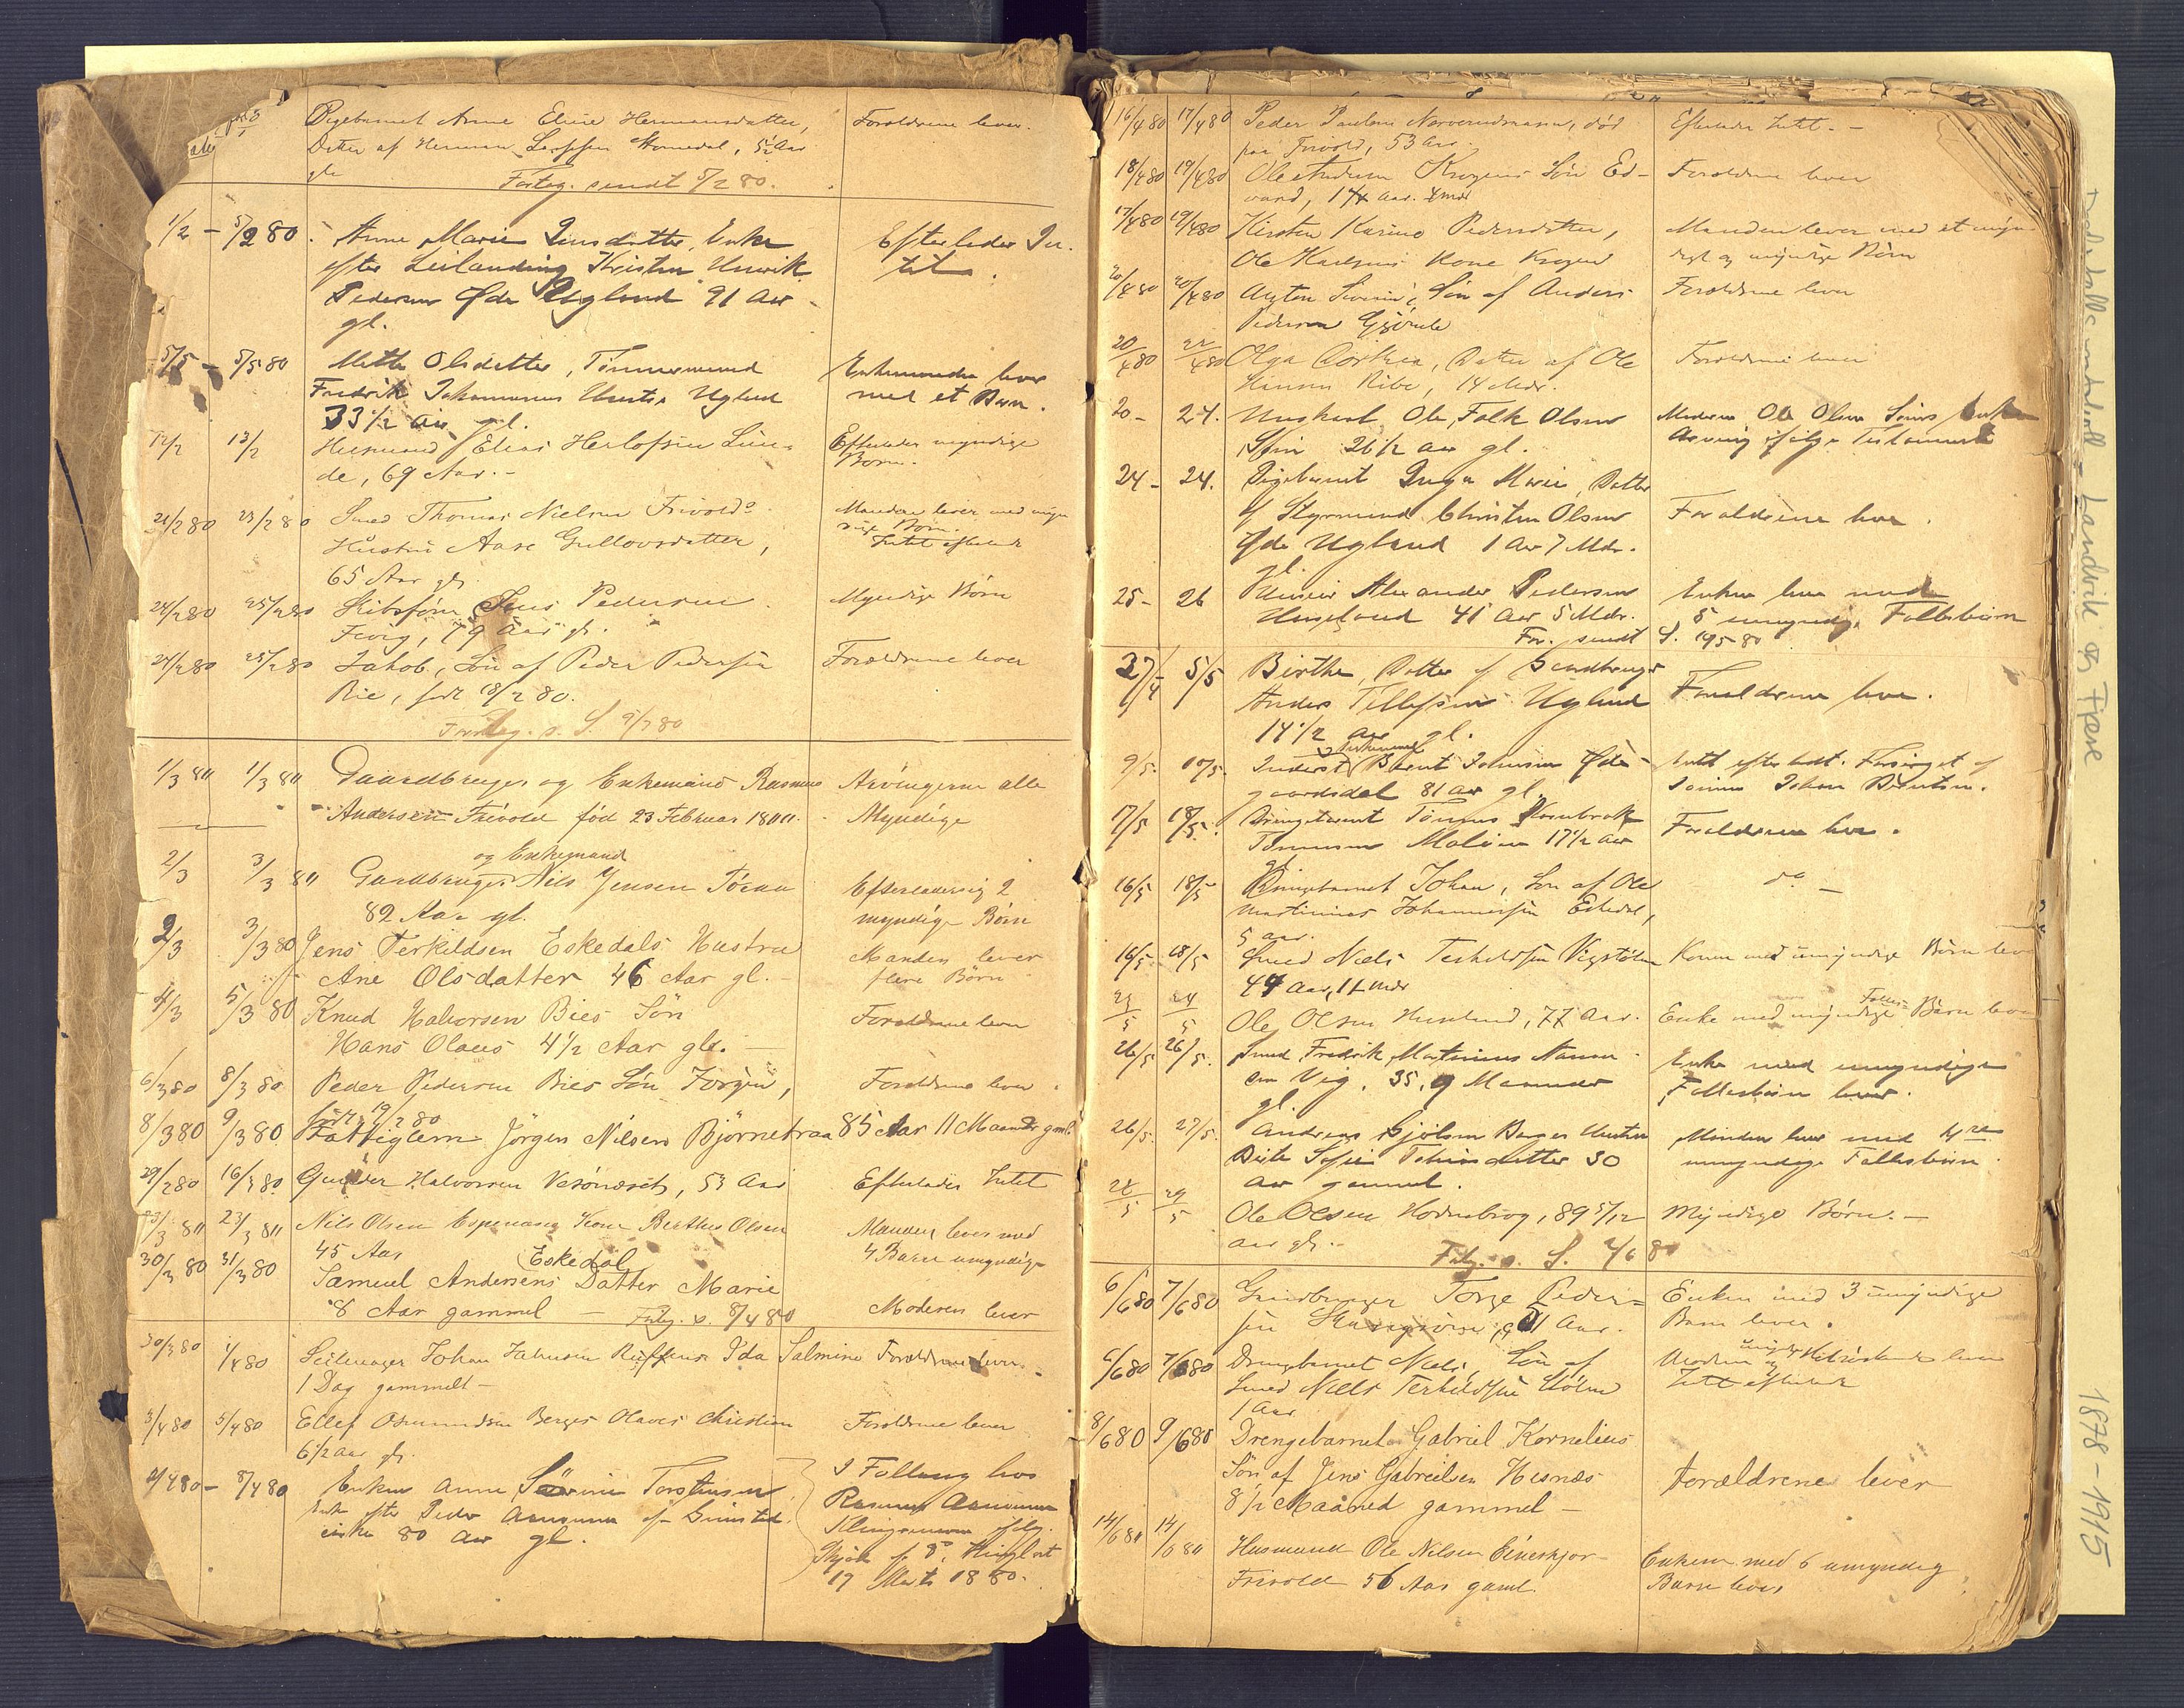 Pigebarnet Anne Elise Hermansdatter,
Datter af Herman Larssen Stomedal, 5½ Aar
gl
Forældrene lever.
Forteg. sendt 5/2 80.
1/2 - 5/2 80. Anne Marie Jensdatter, Enke
efter Leilænding Kristen
Pedersen Øde Ugland 91 Aar
gl.
Efterlader In-
tet.
5/5 - 5/5 80 Mette Olsdatter, Tømmermand
Fredrik Johannesens Hustru Ugland
33 1/2 Aar gl.
Enkemanden lever
med et Barn.
12/2 13/2 Husmand Elias Herlofsen Lun-
de, 69 Aar. -
Efterlader myndige
Børn.
21/2 80 23/2 80 Smed Thomas Nielsen Frivolds
Hustru Aase Gullovsdatter,
65 Aar gl.
Manden lever med myn
dige Børn.
Intet efterladt
24/2 80 25/2 80 Skibsfører Jens Pedersen
Fevig, 79 Aar gl.
Myndige Børn
24/2 80 25/2 80 Jakob, Søn af Peder Pedersen
Bie, født 18/2 80.
Forældrene lever
Forteg. s. S. 9/3 80
1/3 80 1/3 80 Gaardbruger og Enkemand Rasmus
Andersen Frivold fød 23 Februar 1800.
Arvingerne alle
Myndige
2/3 3/3 80 og Enkemand
Gardbruger Nils Jensen Töraa
82 Aar gl.
Efterladersig 2
myndige Børn
2/3 3/3 80 Jens Terkildsen Eskedals Hustru
Ane Olsdatter 46 Aar gl. -
Manden lever
flere Børn
4/3 5/3 80 Knud Halvorsen Bies Søn
Hans Olaus 4 1/2 Aar gl. -
Forældrene lever
6/3 80 8/3 80 Peder Pedersen Bies Søn Jørgen,
født 19/2 80
Forældrene lever.
8/3 80 9/3 80 Fattiglem Jörgen Nilsen Björnetraa 85 Aar 11 Maander gml.
29/2 80 16/3 80 Gunder Halvorsen 53 Aar
Efterlader Intet
23/3 80 23/3 80 Nils Olsen Espenæs Kone Berthe Olsen
45 Aar
Manden lever med
4 Barn umyndige
30/3 80 31/3 80 Eskedal
Samuel Andersens Datter Marie
8 Aar gammel - Forteg. s. 8/4 80
Moderen lever
30/3 80 1/4 80 Seilmager Johan Ida Salmine
1 Dag gammelt -
Forældrene lever.
3/4 80 5/4 80 Ellef Osmundsen Berges Olaves Christian
6 1/2 Aar gl.
Forældrene lever
2/4 80 - 8/4 80 Enken Anne Torstensen
Enke efter Peder Aanonsen af Grimstad
80 Aar gl.
I Følling hos
Rasmus Aanonsen
17 Marts 1880.
16/4 80 17/4 80 Peder Paulsen død
paa Frivold, 53 Aar.
Efterlader Intet. -
18/4 80 19/4 80 Ole Andreas Krogens Søn Ed-
vard, 1 Aar. 4 Mdr
Forældrene lever
17/4 80 19/4 80 Kirsten Karine Pedersdatter,
Ole Karlsens Kone Krogen
Manden lever med et umyn
digt og myndige Børn
20/4 80 20/4 80 Søn af Anders
Pedersen
Forældrene lever
20/4 80 22/4 80 Olga Dorthea, Datter af Ole
Hansen Ribe, 14 Mdr.
Forældrene lever
20- 24. Ungkarl Ole Falk Olsen
26 1/2 Aar gl.
Moderen Ole Olsen Enke
Arving ifølge Testamente
24- 24. Pigebarnet Inga Marie, Datter
af Styrmand Christen Olsen
Øde Ugland 1 Aar 7 Mdr.
gl.
Forældrene lever.
25- 26 Alexander Pedersen
41 Aar 5 Mdr.
For. sendt S. 19/5 80
Enken lever med
5 umyndige Fællesbørn
27/4 5/5 Birthe, Datter af Gaardbruger
Anders Tellefsen Ugland
14 1/2 Aar gl.
Forældrene lever.
9/5. 10/5. Inderst Bernt Johnsen Øde-
gaardsdal 81 Aar gl.
Intet efterladt. Forsørget af
Sønnen Johan Berntsen.
17/5 18/5. Drengebarnet Tønnes
Tønnesen 17 1/2 Aar
gl.
Forældrene lever.
16/5 18/5 Drengebarnet Johan, Søn af Ole
Martinius Johannessen Eskedal,
5 Aar.
do -
16/5 18/5 Smed Niels Terkildsen Vigstølen
44 Aar, 11 Mdr
Konen med umyndige Børn lever
23/5 24/5 Ole Olsen Huseland, 77 Aar.
Enke med myndige Fælles- Børn lever
26/5 26/5. Smed Fredrik Martinius Nansen
Vig. 35, 9 Maaneder
gl.
Enke med umyndige
Fællesbørn lever.
26/5. 27/5. Andreas Gjølsen Berges Hustru
Sofie 30
Aar gammel.
Manden lever med
umyndige Fællesbørn
28/5 29/5 Ole Olsen Hodnebrog, 89 5/12
Aar gl..
Myndige Børn. -
Forteg. s. S. 2/6 80
6/6 80 7/6 80 Gaardbruger Torge Peder-
sen 41 Aar.
Enken med 3 umyndige
Børn lever.
6/6 80 7/6 80 Drengebarnet Niels, Søn af
Smed Niels Terkildsen Støle
1 Aar
Moderen og umyndige Helsøskende lever
Intet efterladt
8/6 80 9/6 80 Drengebarnet Gabriel Kornelius
Søn af Jens Gabreilsen Hesnæs
8 1/2 Maaned gammel -
Forældrene lever
14/6 80 14/6 80 Husmand Ole Nilsen Eineskjor-
Frivold 56 Aar gaml.
Enken med 6 umyndig
Barn lever
Landvik og Fjære
1878-1915